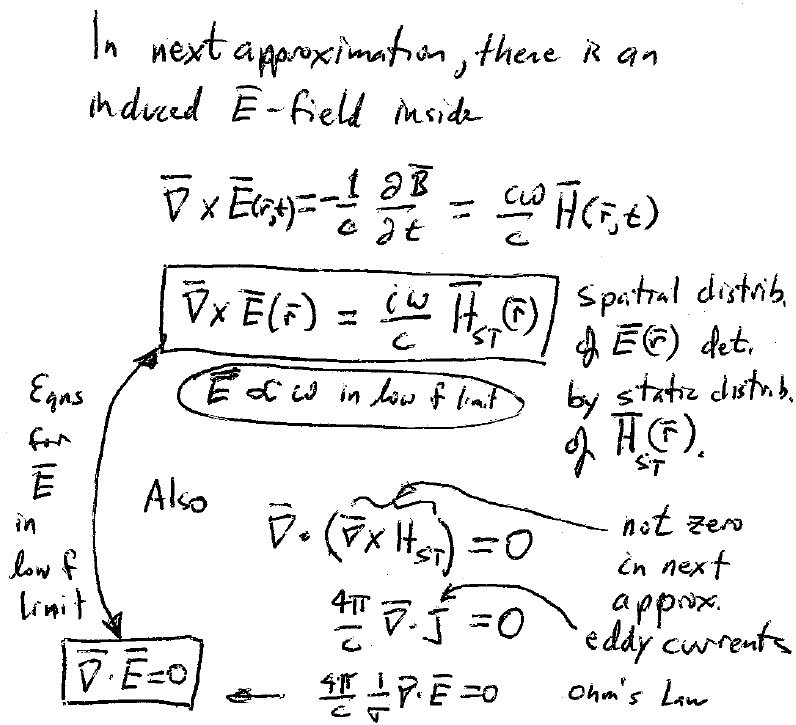 In next approximation, there is an
induced E̅-field inside
∇̅ × E̅(r̅,t) = -1/c ∂B̅/∂t = iω/c H̅(r̅,t)
∇̅ × E̅(r̅) = iω/c H̅_ST(r̅)
spatial distrib.
of E̅(r̅) det.
by static distrib.
of H̅_ST(r̅).
E̅ ∝ ω in low f limit
Eqns
for
E̅
in
low f
limit
Also
∇̅ · (∇̅ × H̅_ST) = 0
not zero
in next
approx.
4π/c ∇̅ · J̅ = 0
eddy currents
∇̅ · E̅ = 0 ← 4π/c 1/σ ∇̅ · E̅ = 0 Ohm's Law